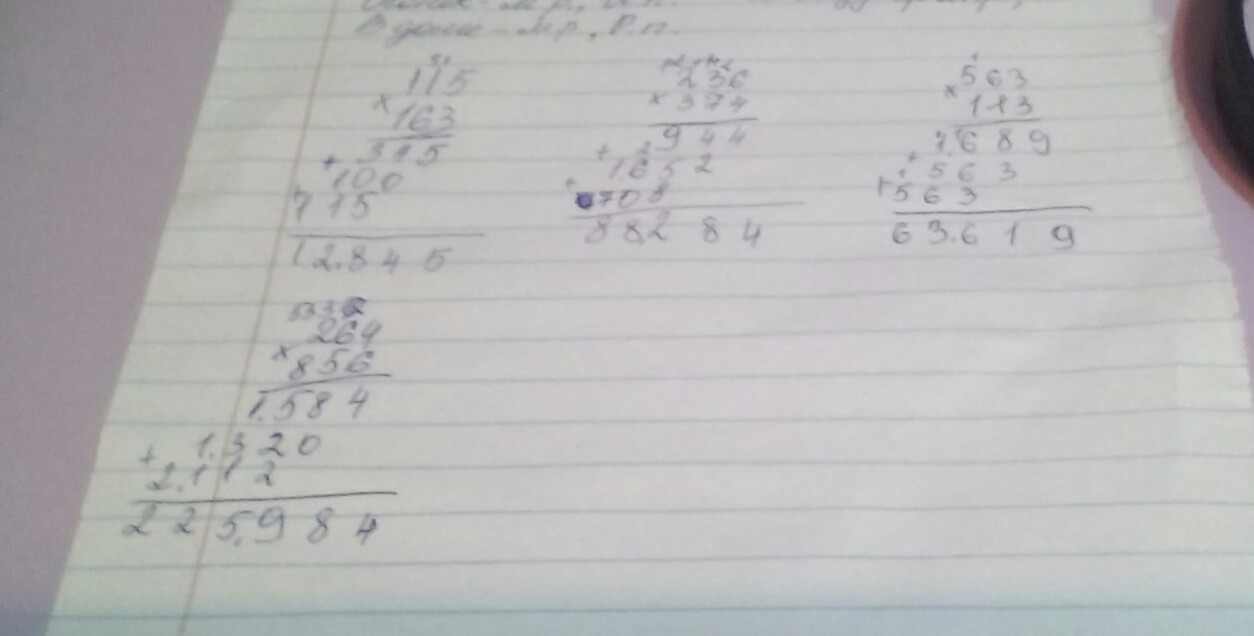 В доме - м.р., П.п.
115
× 163
345
+ 100
+ 115
12.845
236
× 374
944
+ 1652
+ 708
88284
563
× 113
1.689
+ 563
+ 563
63.619
264
× 856
1.584
1.320
+ 2.112
225.984